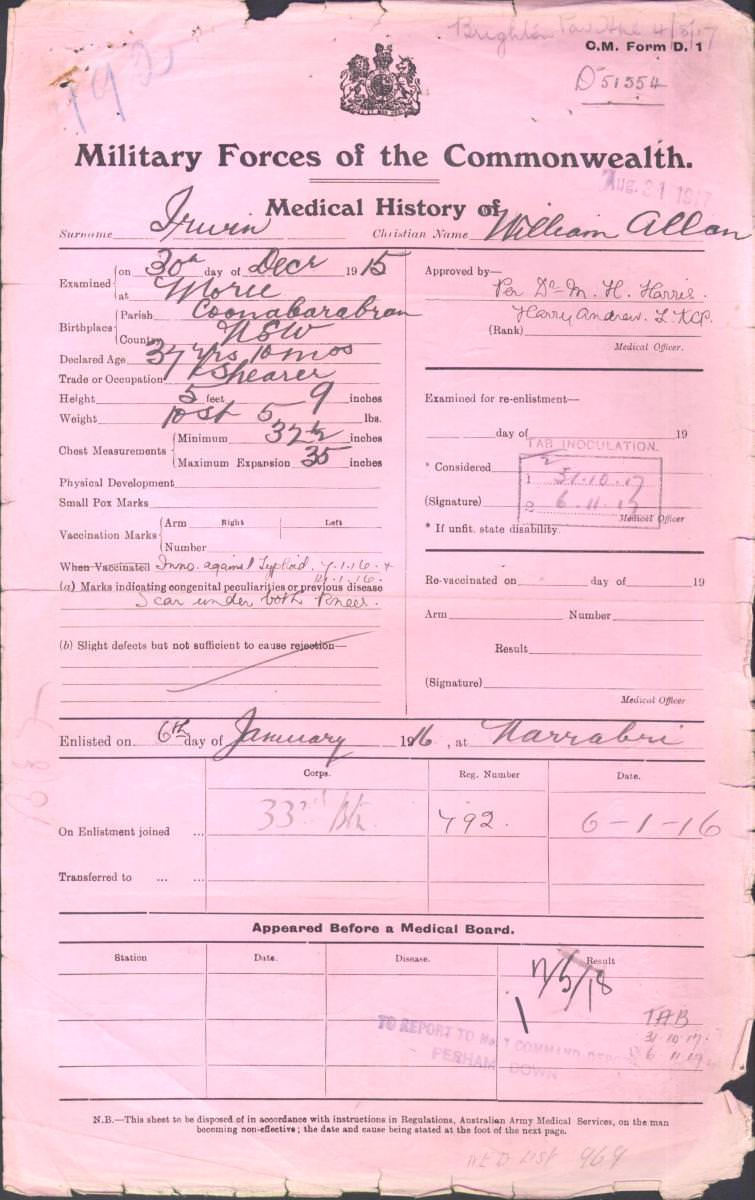 Brighton Pav Hpl 4/5/17
C.M. Form D. 1
D 51554
792
Military Forces of the Commonwealth.
Aug. 21 1917
Medical History of
Surname Irwin Christian Name William Allan
Examined on 30th day of Decr 1915
at Moree
Birthplace Parish Coonabarabran
Country NSW
Declared Age 37 yrs 10 mos
Trade or Occupation Shearer
Height 5 feet 9 inches
Weight 10 st 5 lbs.
Chest Measurements Minimum 32½ inches
Maximum Expansion 35 inches
Physical Development
Small Pox Marks
Vaccination Marks Arm Right Left
Number
When Vaccinated Inno. against Typhoid. 7.1.16 +
1.16.
(a) Marks indicating congenital peculiarities or previous disease
Scar under both knees.
(b) Slight defects but not sufficient to cause rejection—
Approved by—
Per Dr M. H. Harris.
Harry Andrew. L KCP.
(Rank)
Medical Officer.
Examined for re-enlistment—
day of 19
TAB INOCULATION.
* Considered
1 31.10.17
(Signature)
2 6.11.17
Medical Officer
* If unfit. state disability.
Re-vaccinated on day of 19
Arm Number
Result
(Signature)
Medical Officer
Enlisted on 6th day of January 1916, at Narrabri
Corps. Reg. Number Date.
On Enlistment joined ... 33rd Btn. 792. 6-1-16
Transferred to ... ...
Appeared Before a Medical Board.
Station Date. Disease. Result
17/5/18
TAB
31.10.17.
6.11.17
TO REPORT TO No. 1 COMMAND DEPOT
PERHAM DOWN
N.B.—This sheet to be disposed of in accordance with instructions in Regulations, Australian Army Medical Services, on the man
becoming non-effective; the date and cause being stated at the foot of the next page.
MED LIST 969